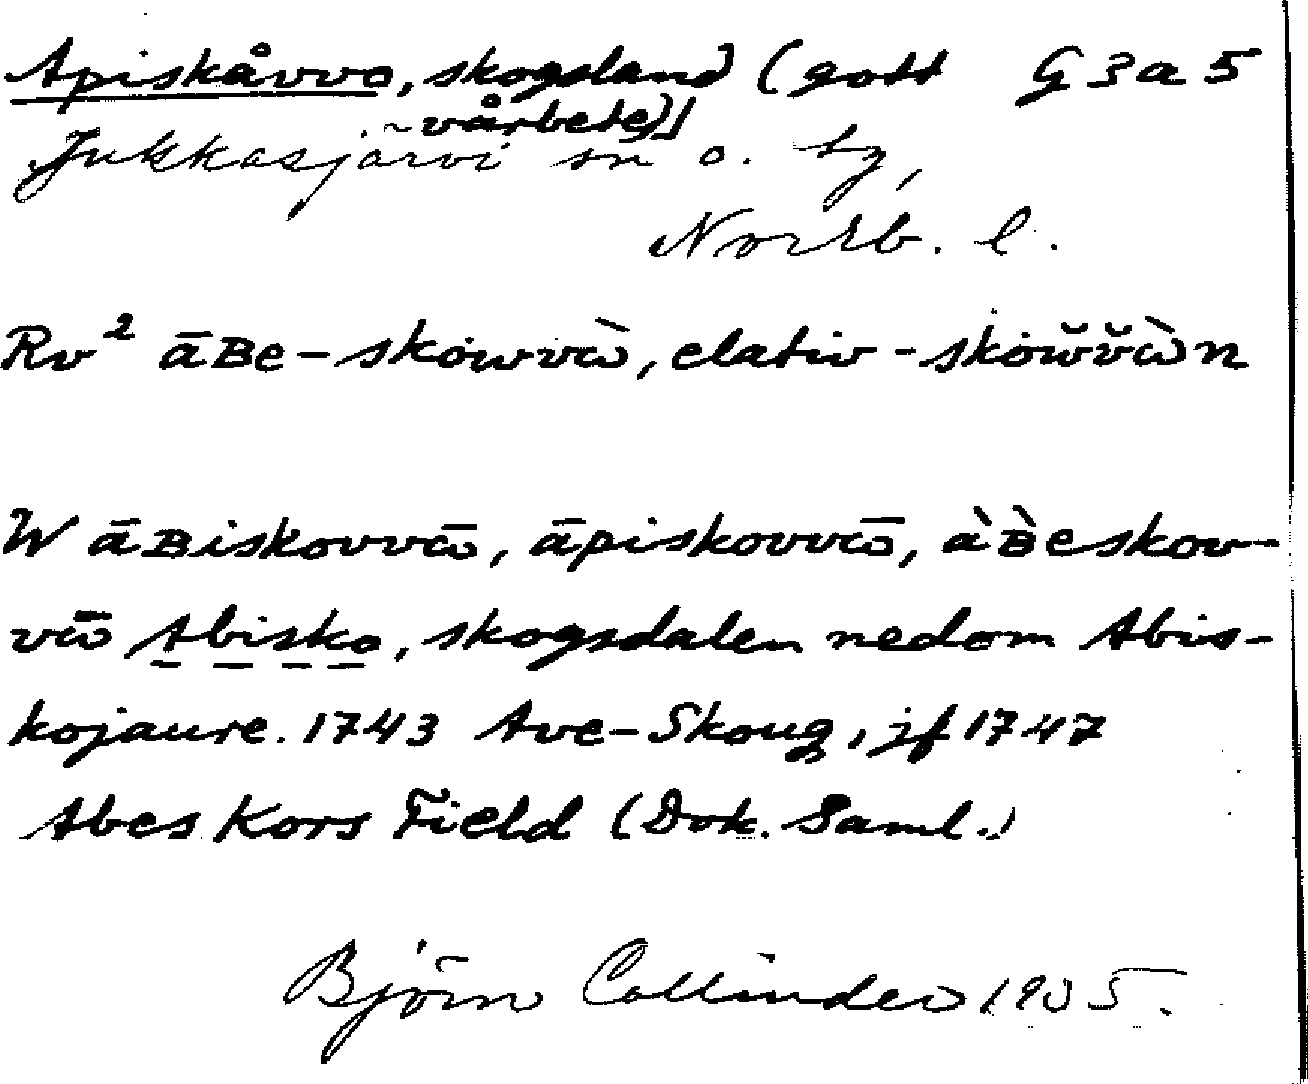 Apiskåvvo, skogsland (gott G 3 a 5
vårbete)]
Jukkasjärvi sn o. tg,
Norrb. l.
Rv² āBe-skowvɑ̀, elativ -skow̆v̆ɑ̀n
W āBiskovvɑ̄, āpiskovvɑ̄, àB̀eskov-
vɑ̄ Abisko, skogsdalen nedom Abis-
kojaure. 1743 Ave-Skoug, jf 1747
Abes Kors Field (Dok. Saml.)
Björn Collinder 1935.